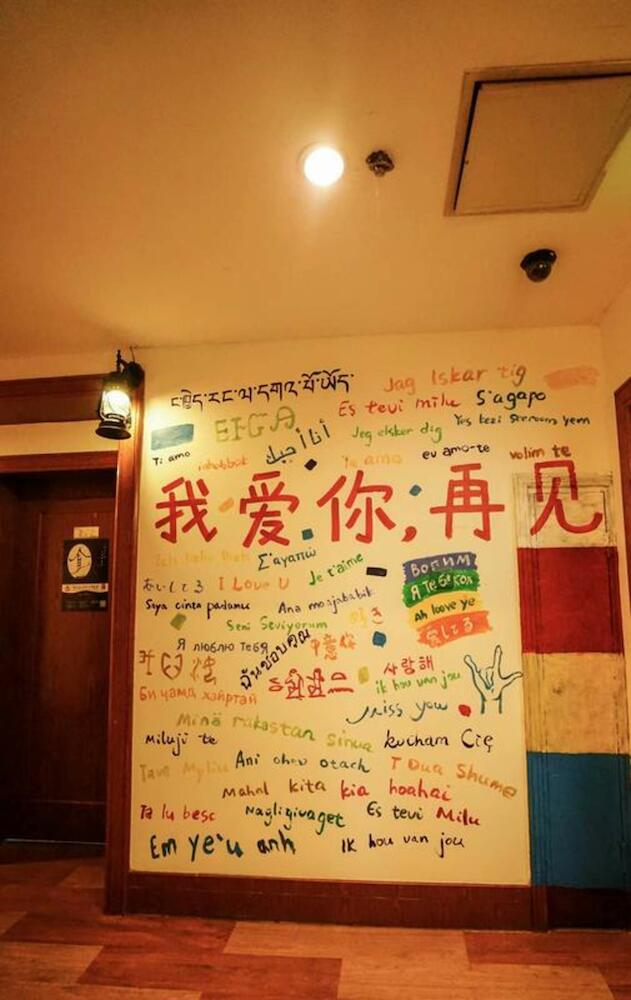 Jag Iskar tig
Es tevi milu
S'agapo
EFGA
أنا أحبك
Jeg elsker dig
Ti amo
inhobbok
Te amo
eu amo-te
volim te
我爱你,再见
Σ'αγαπώ
Je t'aime
あいしてる
I Love U
Saya cinta padamu
Ana moajababik
Seni Seviyorum
Ah loove ye
愛してる
Я люблю тебя
ฉันชอบคุณ
中意你
사랑해
ik hou van jou
Би чамд хайртай
Miss you
Minä rakastan sinua
Miluji te
kocham Cię
Ani ohev otach
T Dua Shume
Mahal kita
kia hoahai
Ta lu besc
Nagligivaget
Es tevi Milu
Em ye'u anh
Ik hou van jou